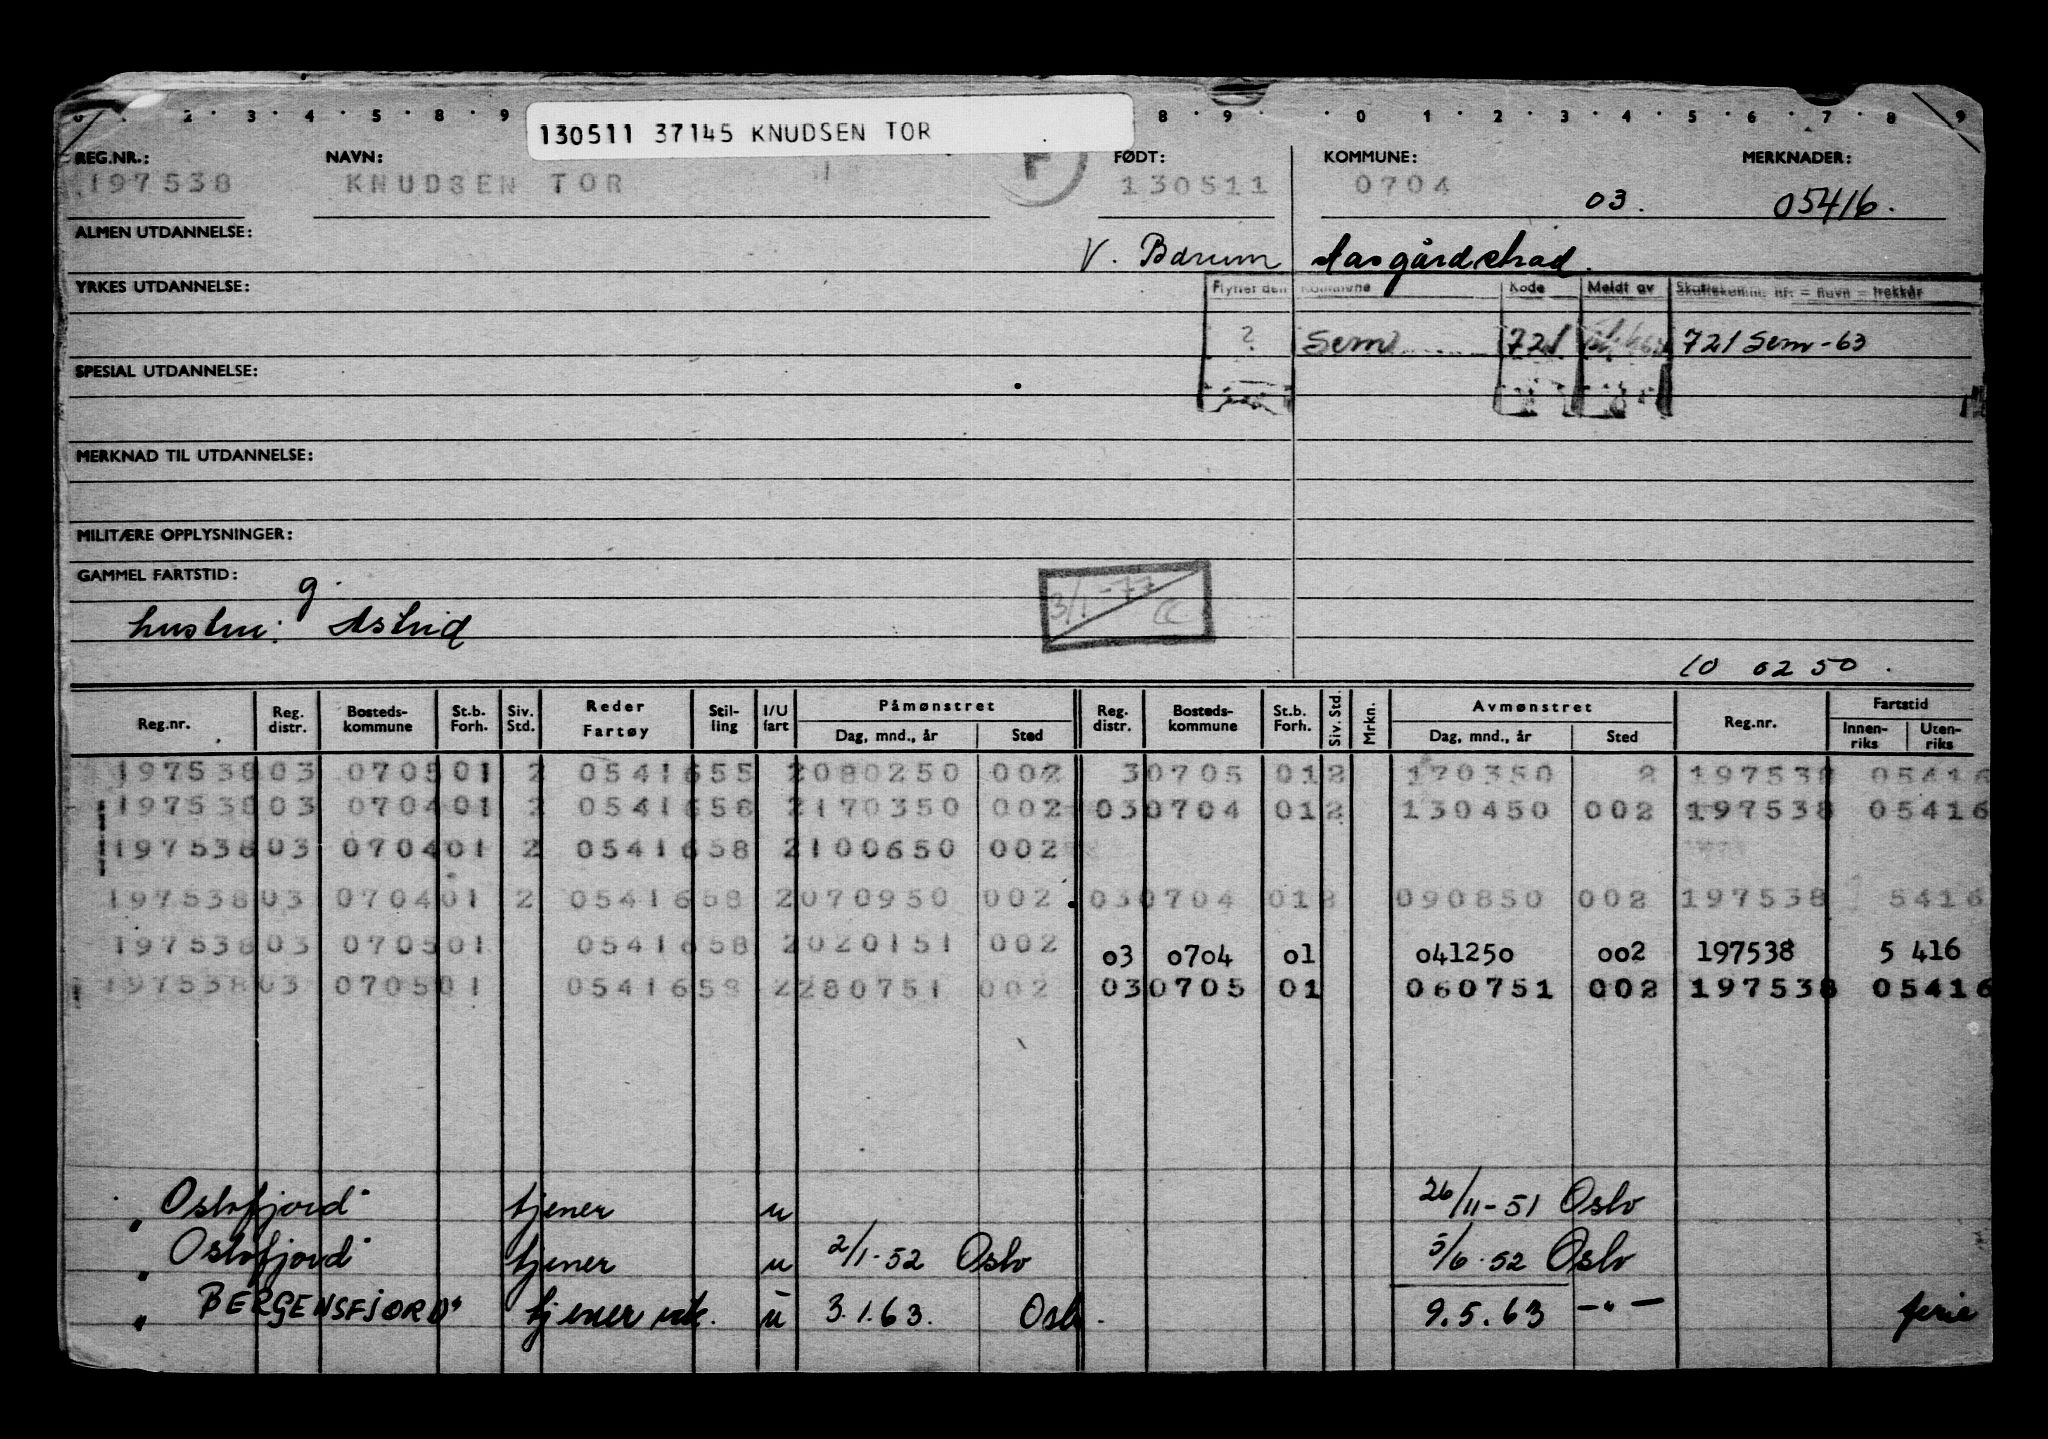 2 · 3 · 4 · 5 · 6 · 8 · 9 8 · 9 · · 0 · 1 · 2 · 3 · 4 · 5 · 6 · 7 · 8 · 9
130511 37145 KNUDSEN TOR
REG.NR.: NAVN: F FØDT: KOMMUNE: MERKNADER:
197538 KNUDSEN TOR 130511 0704 03. 05416.
ALMEN UTDANNELSE: V. Bærum Aasgårdstrad.
YRKES UTDANNELSE: Flyttet den Kommune Kode Meldt av Skattekomm. nr. = navn = trekkår
? Sem 721 721 Sem-63
SPESIAL UTDANNELSE:
MERKNAD TIL UTDANNELSE:
MILITÆRE OPPLYSNINGER:
GAMMEL FARTSTID:
g.
hustru: Astrid 3/1-77 CC
10 02 50.
Reg.nr. Reg. distr. Bosteds-kommune St.b. Forh. Siv. Std. Reder Fartøy Stil-ling I/U fart Påmønstret Dag, mnd., år Sted Reg. distr. Bosteds-kommune St.b. Forh. Siv. Std. Mrkn. Avmønstret Dag, mnd., år Sted Reg.nr. Fartstid Innen-riks Uten-riks
197538 03 0705 01 2 05416 55 2 080250 002 3 0705 01 2 170350 2 197538 05416
197538 03 0704 01 2 05416 58 2 170350 002 03 0704 01 2 130450 002 197538 05416
197538 03 0704 01 2 05416 58 2 100650 002
197538 03 0704 01 2 05416 58 2 070950 002 03 0704 01 2 090850 002 197538 5416
197538 03 0705 01 05416 58 2 020151 002 03 0704 01 041250 002 197538 5 416
197538 03 0705 01 05416 58 2 280751 002 03 0705 01 060751 002 197538 05416
„Oslofjord" tjener u 26/11-51 Oslo
„Oslofjord" tjener u 2/1-52 Oslo 5/6-52 Oslo
„BERGENSFJORD" tjener u 3.1.63. Oslo. 9.5.63 —"— ferie